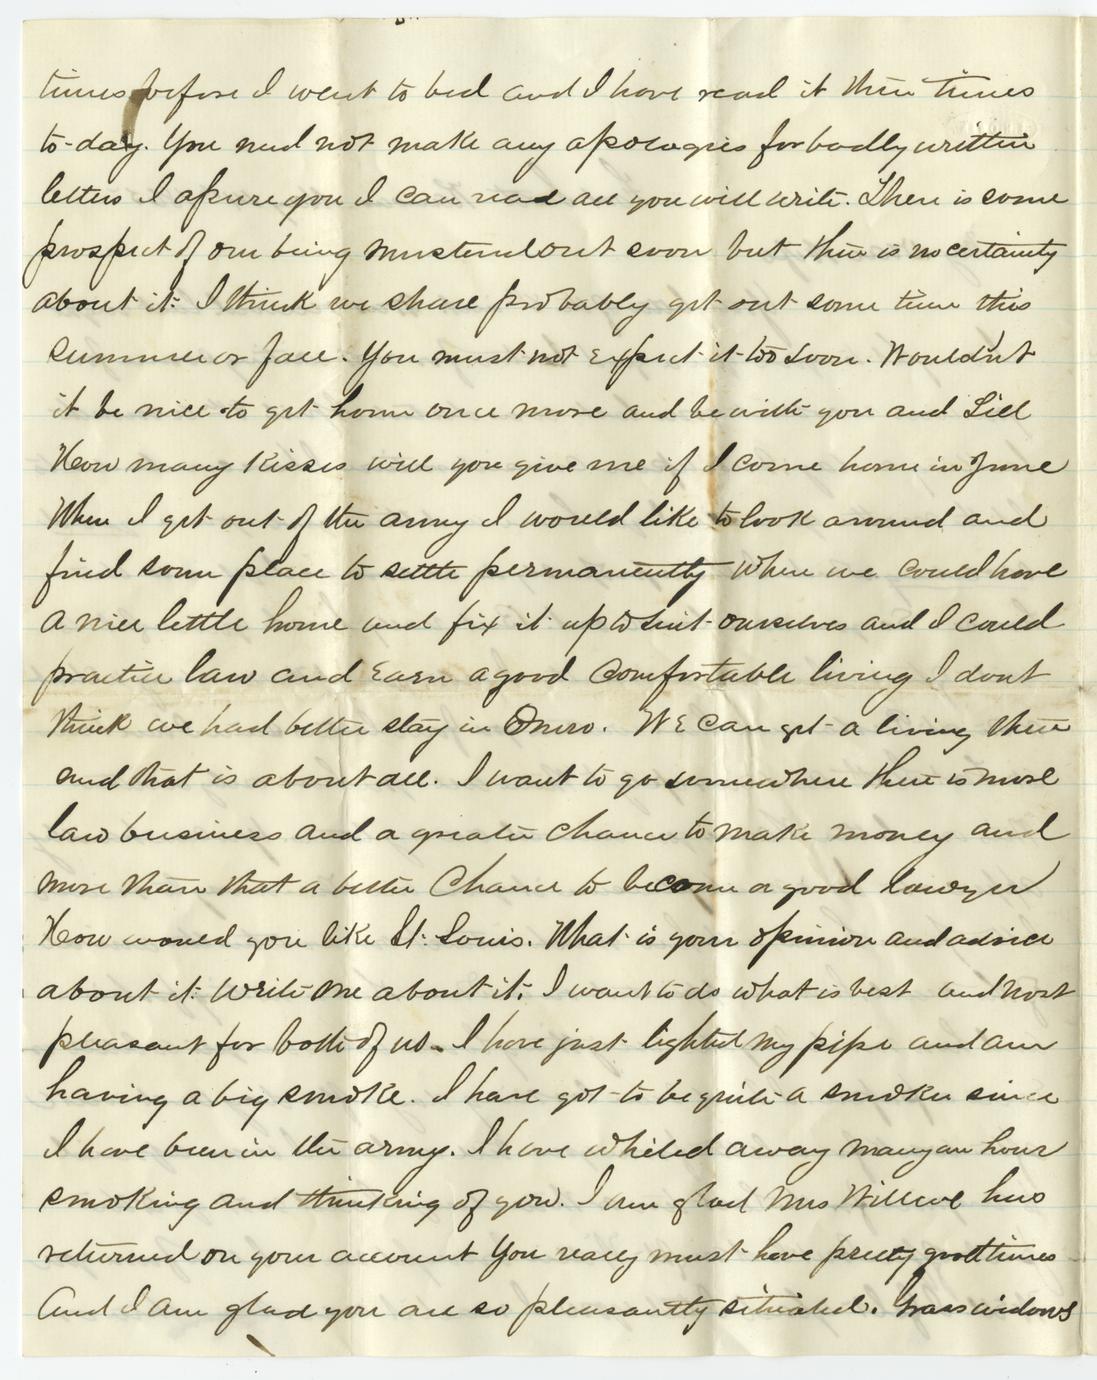 times before I went to bed and I have read it three times
to-day. You need not make any apologies for badly written
letters I assure you I can read all you will write. There is some
prospect of our being mustered out soon but there is no certainty
about it. I think we shall probably get out some time this
summer or fall. You must not expect it too soon. Wouldn't
it be nice to get home once more and be with you and Lill
How many kisses will you give me if I come home in June
When I get out of the army I would like to look around and
find some place to settle permanently where we could have
a nice little home and fix it up to suit ourselves and I could
practice law and earn a good comfortable living I dont
think we had better stay in Omro. We can get a living there
and that is about all. I want to go somewhere there is more
law business and a greater chance to make money and
more than that a better chance to become a good lawyer
How would you like St. Louis. What is your opinion and advice
about it. Write me about it. I want to do what is best and most
pleasant for both of us. I have just lighted my pipe and am
having a big smoke. I have got to be quite a smoker since
I have been in the army. I have whiled away many an hour
smoking and thinking of you. I am glad Mrs has
returned on your account You really must have pretty good times
And I am glad you are so pleasantly situated. Grass widows